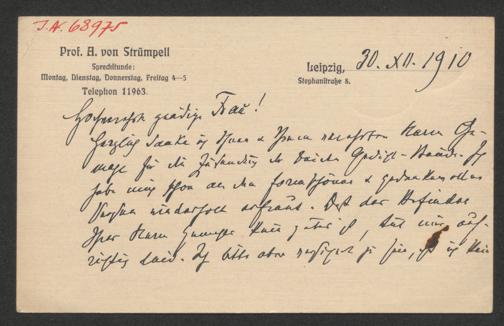 I.N. 68975
Prof. A. von Strümpell
Sprechstunde:
Montag, Dienstag, Donnerstag, Freitag 4—5
Telephon 11963.
Leipzig, 30. XII. 1910
Stephanstraße 8.
Hochverehrte gnädige Frau!
Herzlich danke ich Ihnen & Ihrem verehrten Herrn Ge-
mahl für die Zusendung der beiden Gedicht-Bände. Ich
habe mich schon an den formschönen & gedankenvollen
Versen wiederholt erfreut. Daß das Befinden
Ihres Herrn Gemahls kein gutes ist, tut mir auf-
richtig leid. Ich bitte aber versichert zu sein, daß ich kein